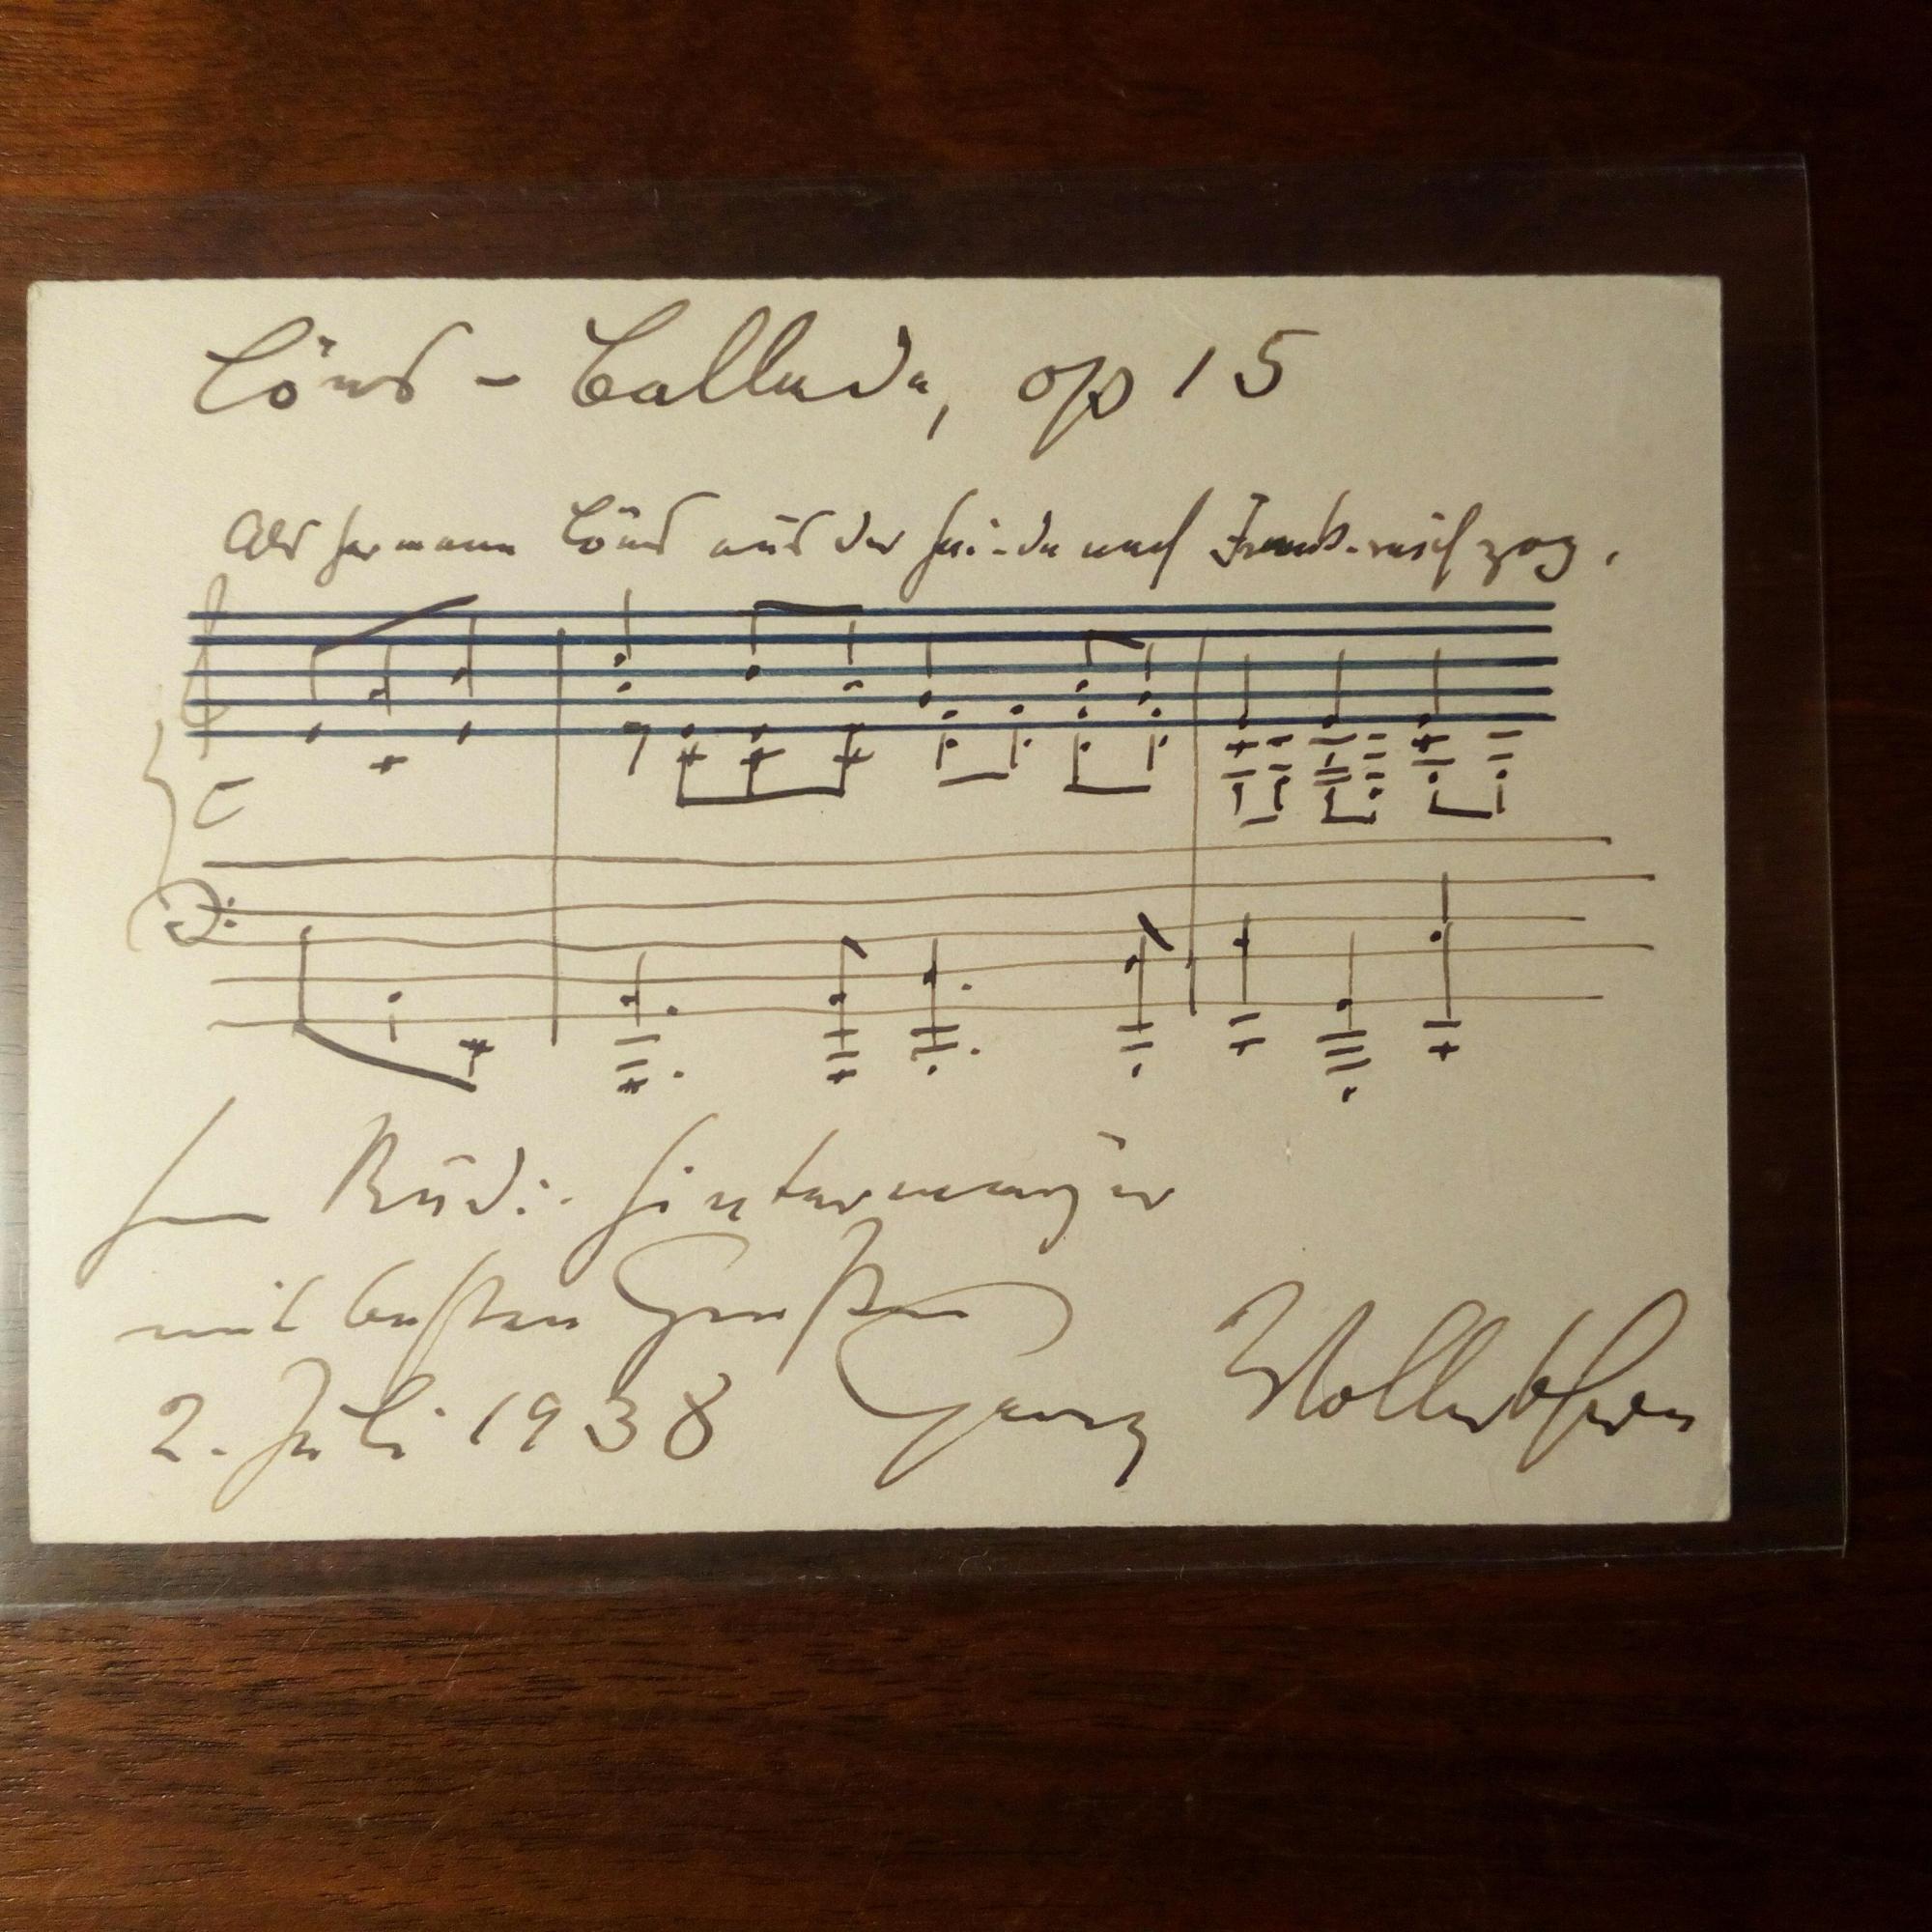 Löns - Ballade, op 15
Als Hermann Löns aus der Hei-de nach Frank-reich zog.
Rudi Hintermayer
mit besten Grüßen
2. Juli 1938 Georg Vollerthun